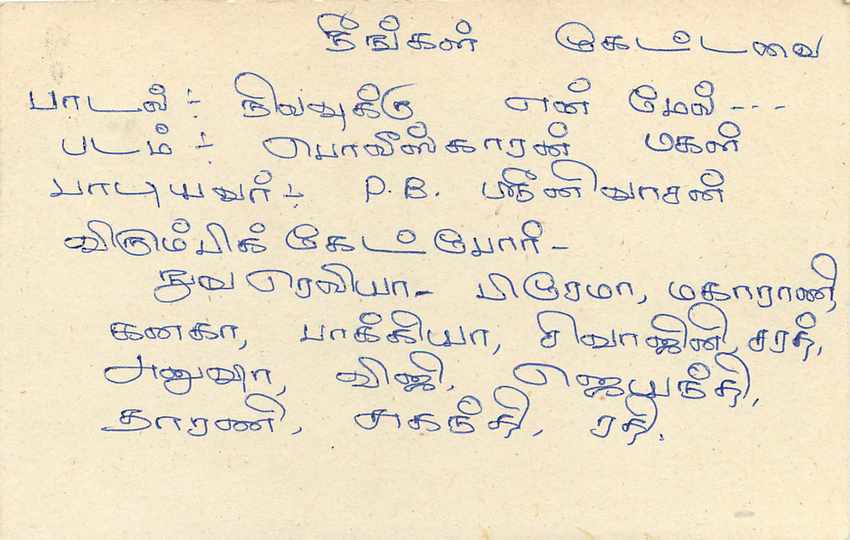 நீங்கள் கேட்டவை
பாடல் :- நிலவுக்கு என் மேல் ---
படம் :- பொலிஸ்காரன் மகள்
பாடியவர் :- P.B. ஸ்ரீனிவாசன்
விரும்பிக் கேட்போர் -
நுவரெலியா - பிரேமா, மகாராணி,
கனகா, பாக்கியா, சிவாஜினி, சரத்,
அனுஷா, விஜி, ஜெயந்தி,
தாரணி, சுகந்தி, ரதி.